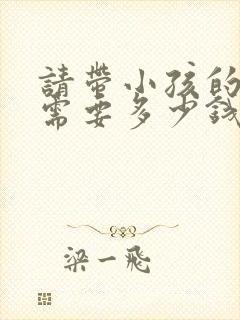 請帶小孩的
需要多少錢
梁一飛